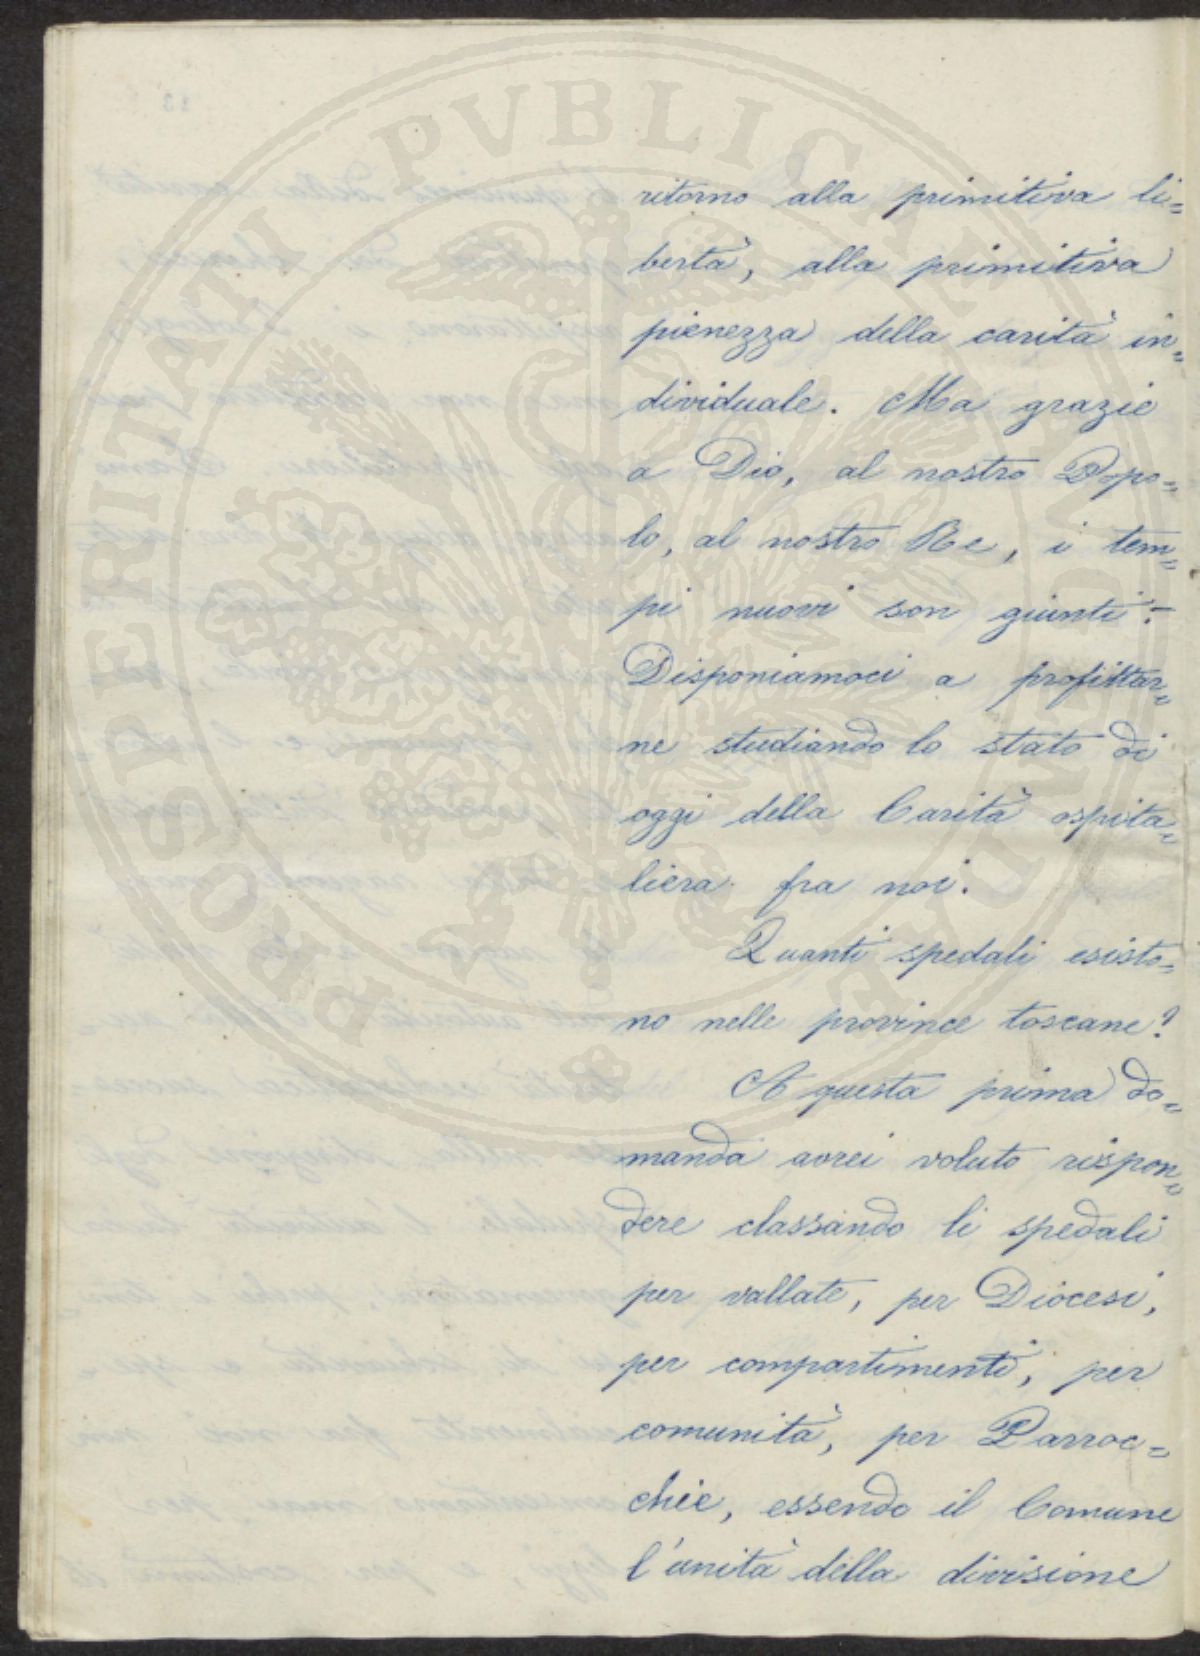 ritorno alla primitiva li=
bertà, alla primitiva
pienezza della carità in=
dividuale. Ma grazie
a Dio, al nostro Popo=
lo, al nostro Re, i tem=
pi nuovi son giunti: -
Disponiamoci a profittar=
ne studiando lo stato di
oggi della Carità ospita=
liera fra noi.
Quanti spedali esisto=
no nelle province toscane?
A questa prima do=
manda avrei voluto rispon=
dere classando li spedali
per vallate, per Diocesi,
per compartimenti, per
comunità, per Parroc=
chie, essendo il Comune
l'unità della divisione
PROSPERITATI PVBLICAE